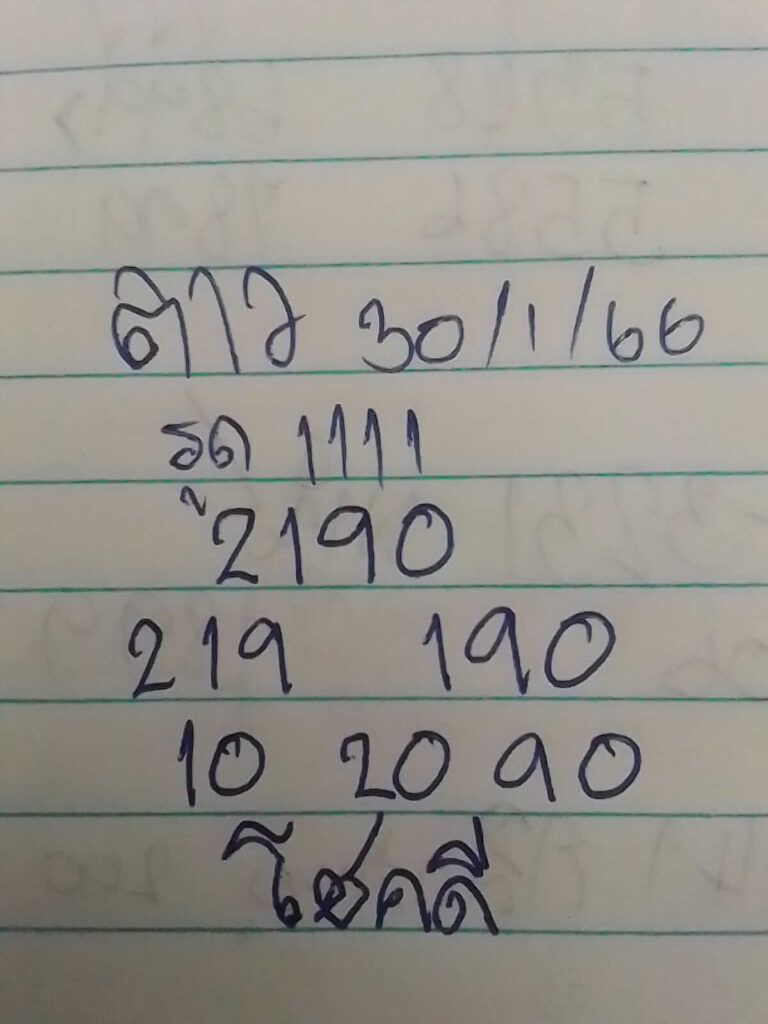 ลาว 30/1/66
รด 1111
2190
219 190
10 20 90
โชคดี